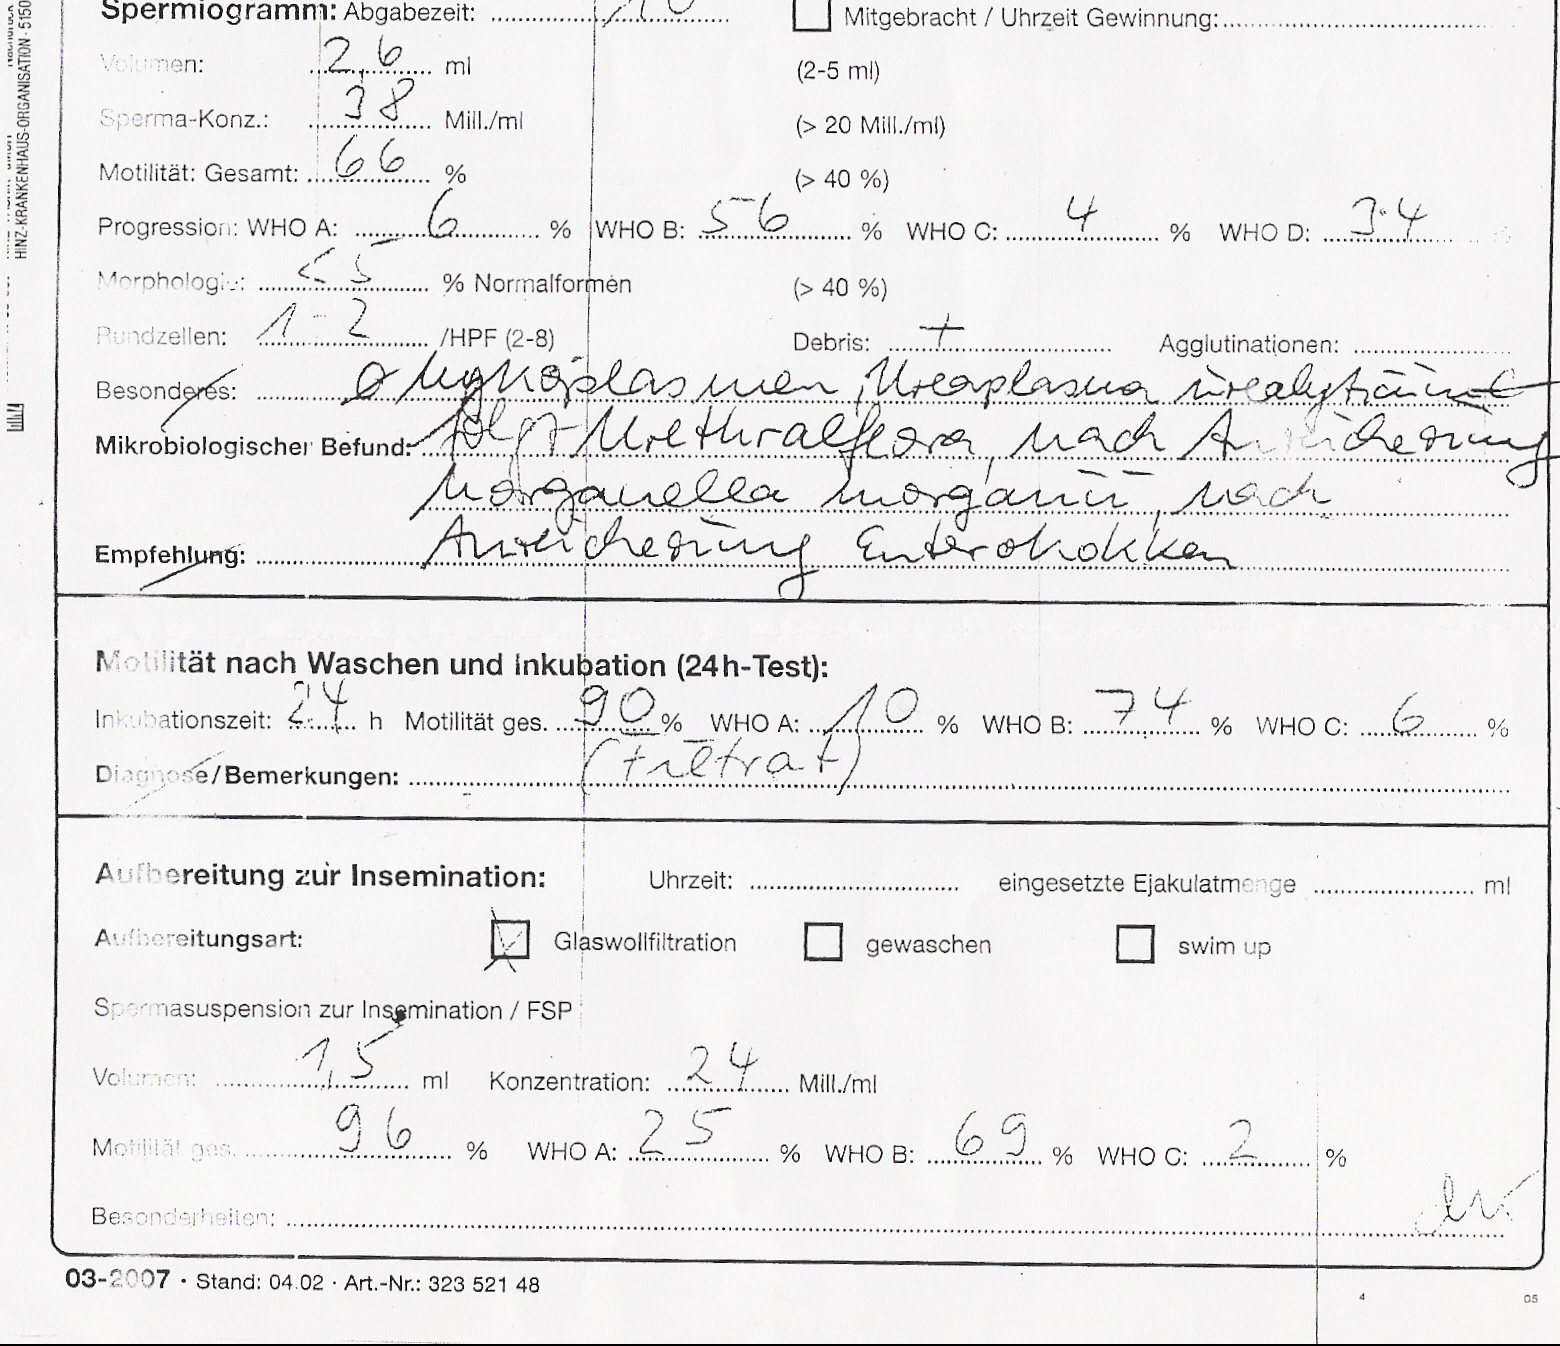 Spermiogramm: Abgabezeit: 10 Mitgebracht / Uhrzeit Gewinnung:
Volumen: 2,6 ml (2-5 ml)
Sperma-Konz.: 38 Mill./ml (> 20 Mill./ml)
Motilität: Gesamt: 66 % (> 40 %)
Progression: WHO A: 6 % WHO B: 56 % WHO C: 4 % WHO D: 34
Morphologie: < 5 % Normalformen (> 40 %)
Rundzellen: 1-2 /HPF (2-8) Debris: + Agglutinationen:
Besonderes: Ø Mykoplasmen, Ureaplasma
Mikrobiologischer Befund: Urethralflora, nach Anreicherung
Morganella morganii, nach
Empfehlung: Anreicherung Enterokokken
Motilität nach Waschen und Inkubation (24h-Test):
Inkubationszeit: 24 h Motilität ges. 90 % WHO A: 10 % WHO B: 74 % WHO C: 6 %
Diagnose/Bemerkungen: (Filtrat)
Aufbereitung zur Insemination: Uhrzeit: eingesetzte Ejakulatmenge ml
Aufbereitungsart: Glaswollfiltration gewaschen swim up
Spermasuspension zur Insemination / FSP
Volumen: 1,5 ml Konzentration: 24 Mill./ml
Motilität ges. 96 % WHO A: 25 % WHO B: 69 % WHO C: 2 %
Besonderheiten:
03-2007 · Stand: 04.02 · Art.-Nr.: 323 521 48
4 05
HINZ-KRANKENHAUS-ORGANISATION · 5150